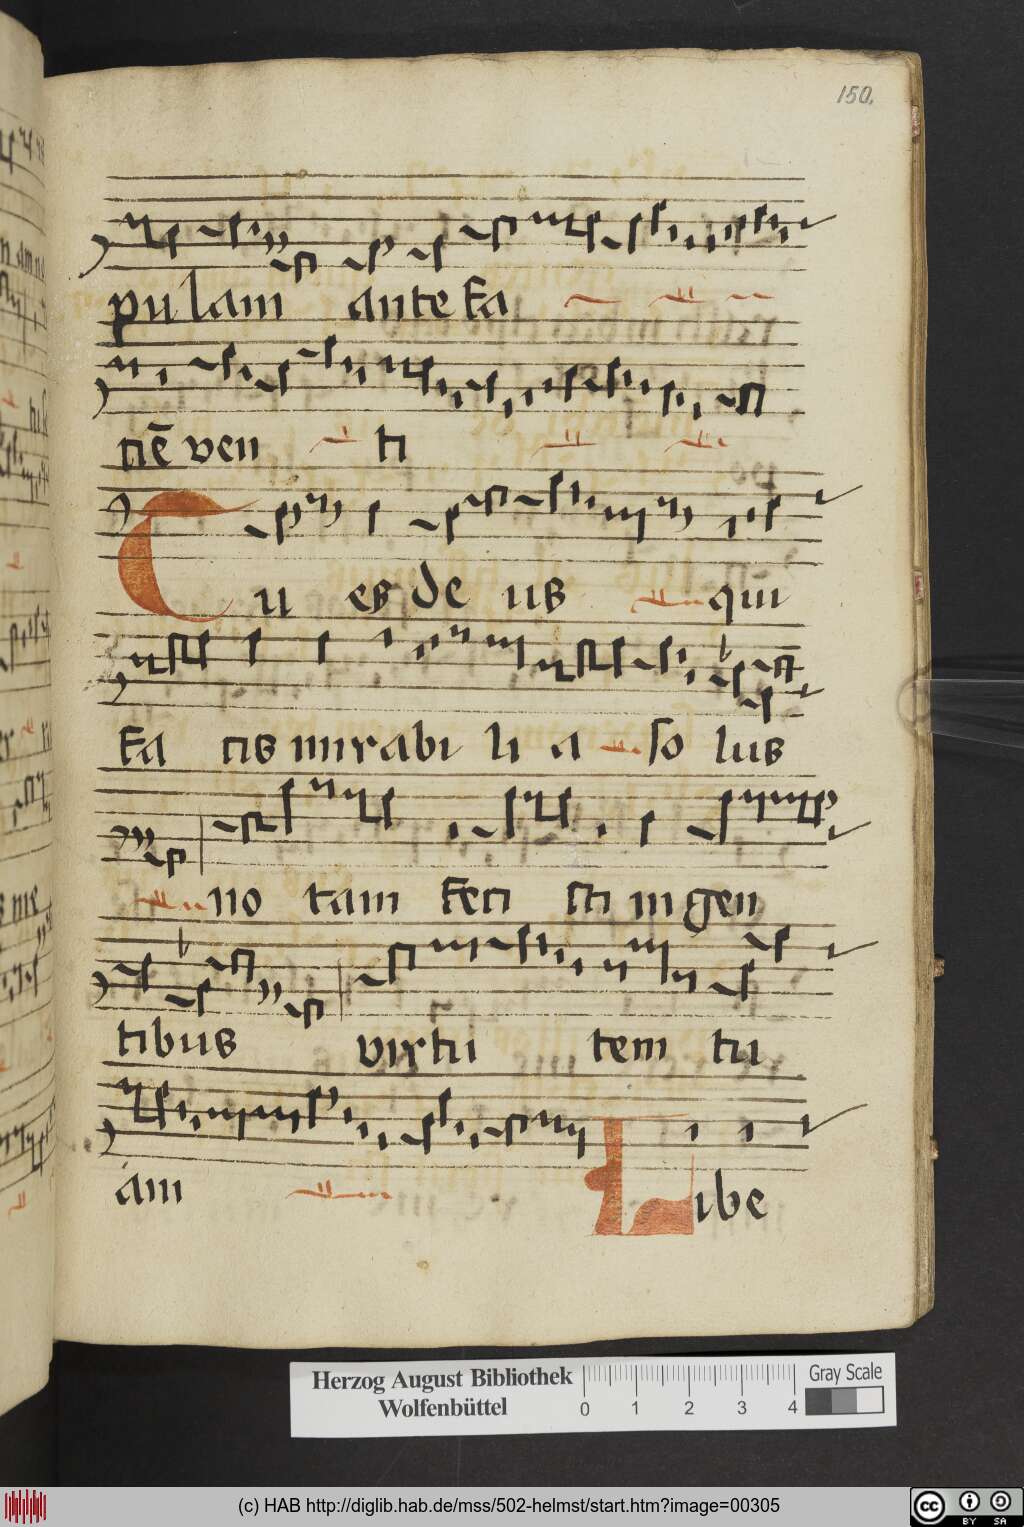 150.
pulam ante fa
ciē ven ti
Tu es de us qui
fa cis mirabi li a so lus
no tam feci sti in gen
tibus virtu tem tu
am Libe
Herzog August Bibliothek
Wolfenbüttel
0 1 2 3 4
Gray Scale
(c) HAB http://diglib.hab.de/mss/502-helmst/start.htm?image=00305
cc BY SA